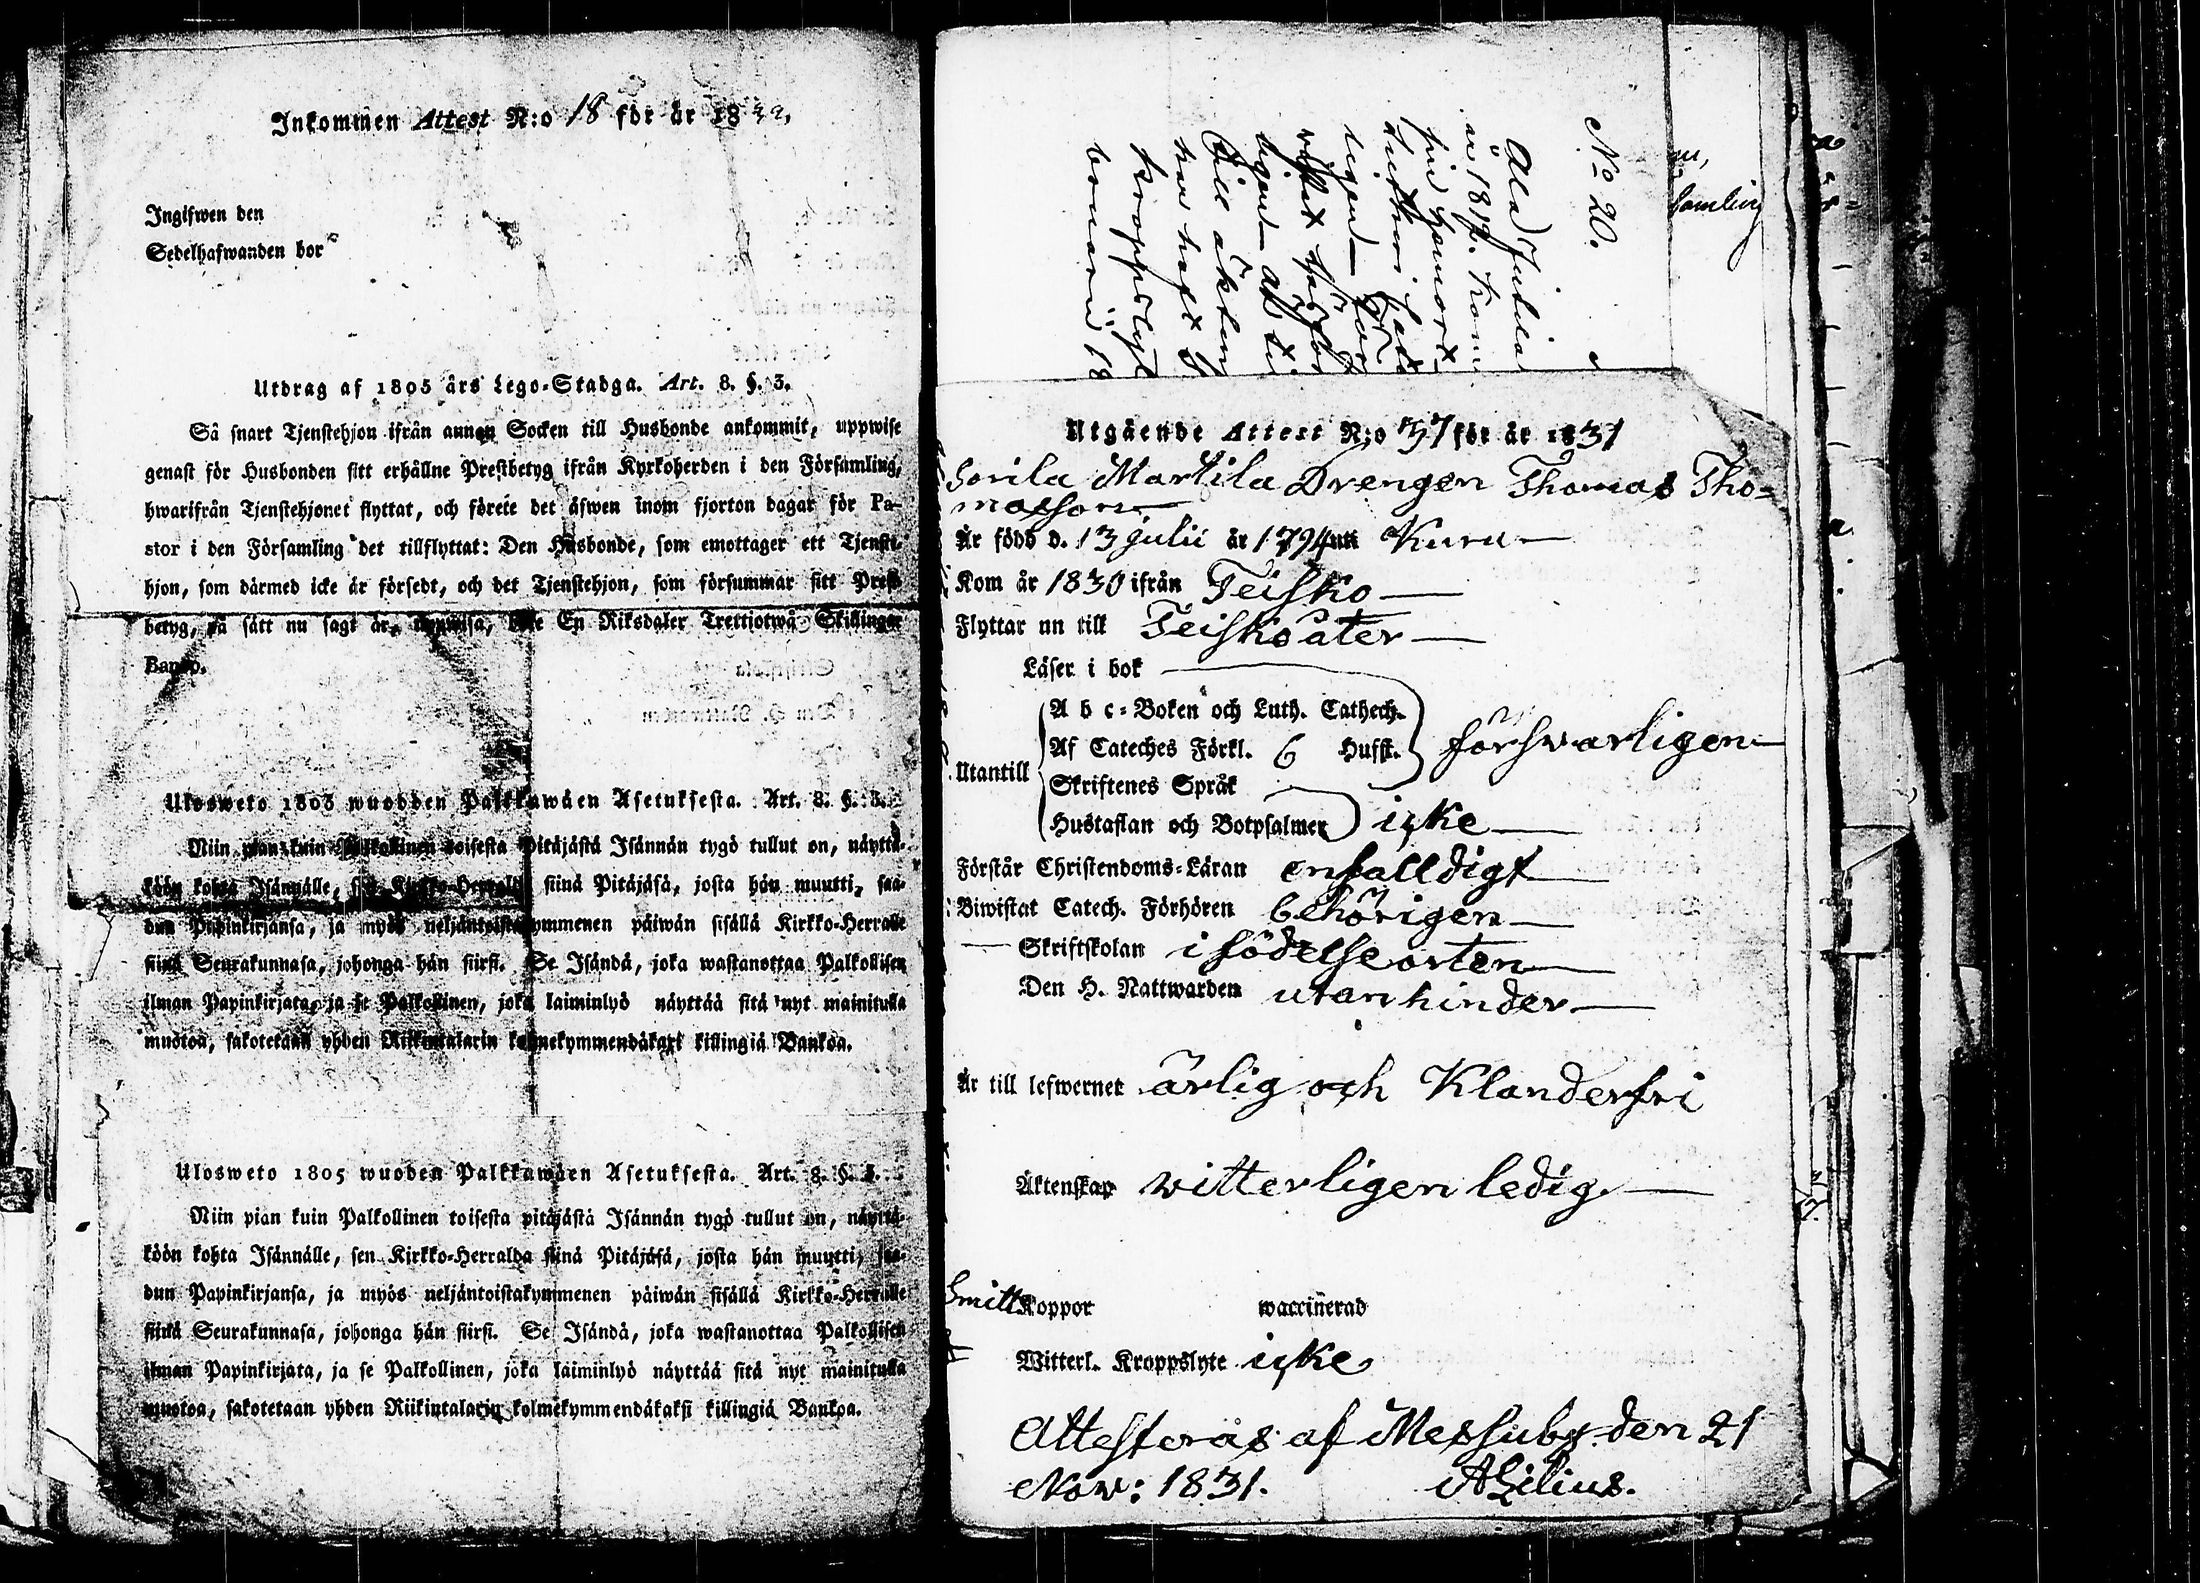 Inkommen Attest N:o 18 för år 1832.
Ingifwen den
Sedelhafwanden bor
Utdrag af 1805 års Lego-Stadga. Art. 8. §. 3.
Så snart Tjenstehjon ifrån annan Socken till Husbonde ankommit, uppwise
genast för Husbonden sitt erhållne Prestbetyg ifrån Kyrkoherden i den Församling,
hwarifrån Tjenstehjonet flyttat, och förete det äfwen inom fjorton dagar för Pa-
stor i den Församling det tillflyttat: Den Husbonde, som emottager ett Tjenste-
hjon, som därmed icke är försedt, och det Tjenstehjon, som försummar sitt Prest-
betyg, på sätt nu sagt är, uppwisa, böte En Riksdaler Trettiotwå Skillingar
Banco.
Ulosweto 1805 wuoden Palkkawäen Asetuksesta. Art. 8. §. 3.
Niin pian kuin Palkollinen toisesta Pitäjästä Isännän tygö tullut on, näyttä-
köön kohta Isännälle, sen Kirkko-Herralda siinä Pitäjäsä, josta hän muutti, saa-
dun Papinkirjansa, ja myös neljäntoistakymmenen päiwän sisällä Kirkko-Herralle
siinä Seurakunnasa, johonga hän siirsi. Se Isändä, joka wastanottaa Palkollisen
ilman Papinkirjata, ja se Palkollinen, joka laiminlyö näyttää sitä nyt mainitulla
muotoa, sakotetaan yhden Riikintalarin kolmekymmendäkaxi killingiä Bankoa.
Ulosweto 1805 wuoden Palkkawäen Asetuksesta. Art. 8. §. 3.
Niin pian kuin Palkollinen toisesta pitäjästä Isännän tygö tullut on, näyttä-
köön kohta Isännälle, sen Kirkko-Herralda siinä Pitäjäsä, josta hän muutti, saa-
dun Papinkirjansa, ja myös neljäntoistakymmenen päiwän sisällä Kirkko-Herralle
siinä Seurakunnasa, johonga hän siirsi. Se Isändä, joka wastanottaa Palkollisen
ilman Papinkirjata, ja se Palkollinen, joka laiminlyö näyttää sitä nyt mainitulla
muotoa, sakotetaan yhden Riikintalarin kolmekymmendäkaksi killingiä Bankoa.
No 20.
till äkten
har haft
Kroppslyt
Utgående Attest N:o 37 för år 1831
Sorila Martila Drengen Thomas Tho=
masson
Är född d. 13 Julii år 1794 uti Kuru
Kom år 1830 ifrån Teisko
Flyttar nu till Teisko åter
Läser i bok
A b c-Boken och Luth. Cathech.
Af Cateches Förkl. 6 Hufst. förswarligen
Utantill
Skriftenes Språk
Hustaflan och Botpsalmer icke
Förstår Christendoms-Läran enfalldigt
Biwistat Catech. Förhören behörigen
Skriftskolan i födelseorten
Den H. Nattwarden utan hinder
Är till lefwernet ärlig och Klanderfri
Äktenskap witterligen ledig
Smitt Koppor waccinerad
Witterl. Kroppslyte icke
Attesteras af Messuby den 21
Nov: 1831. AGilius.